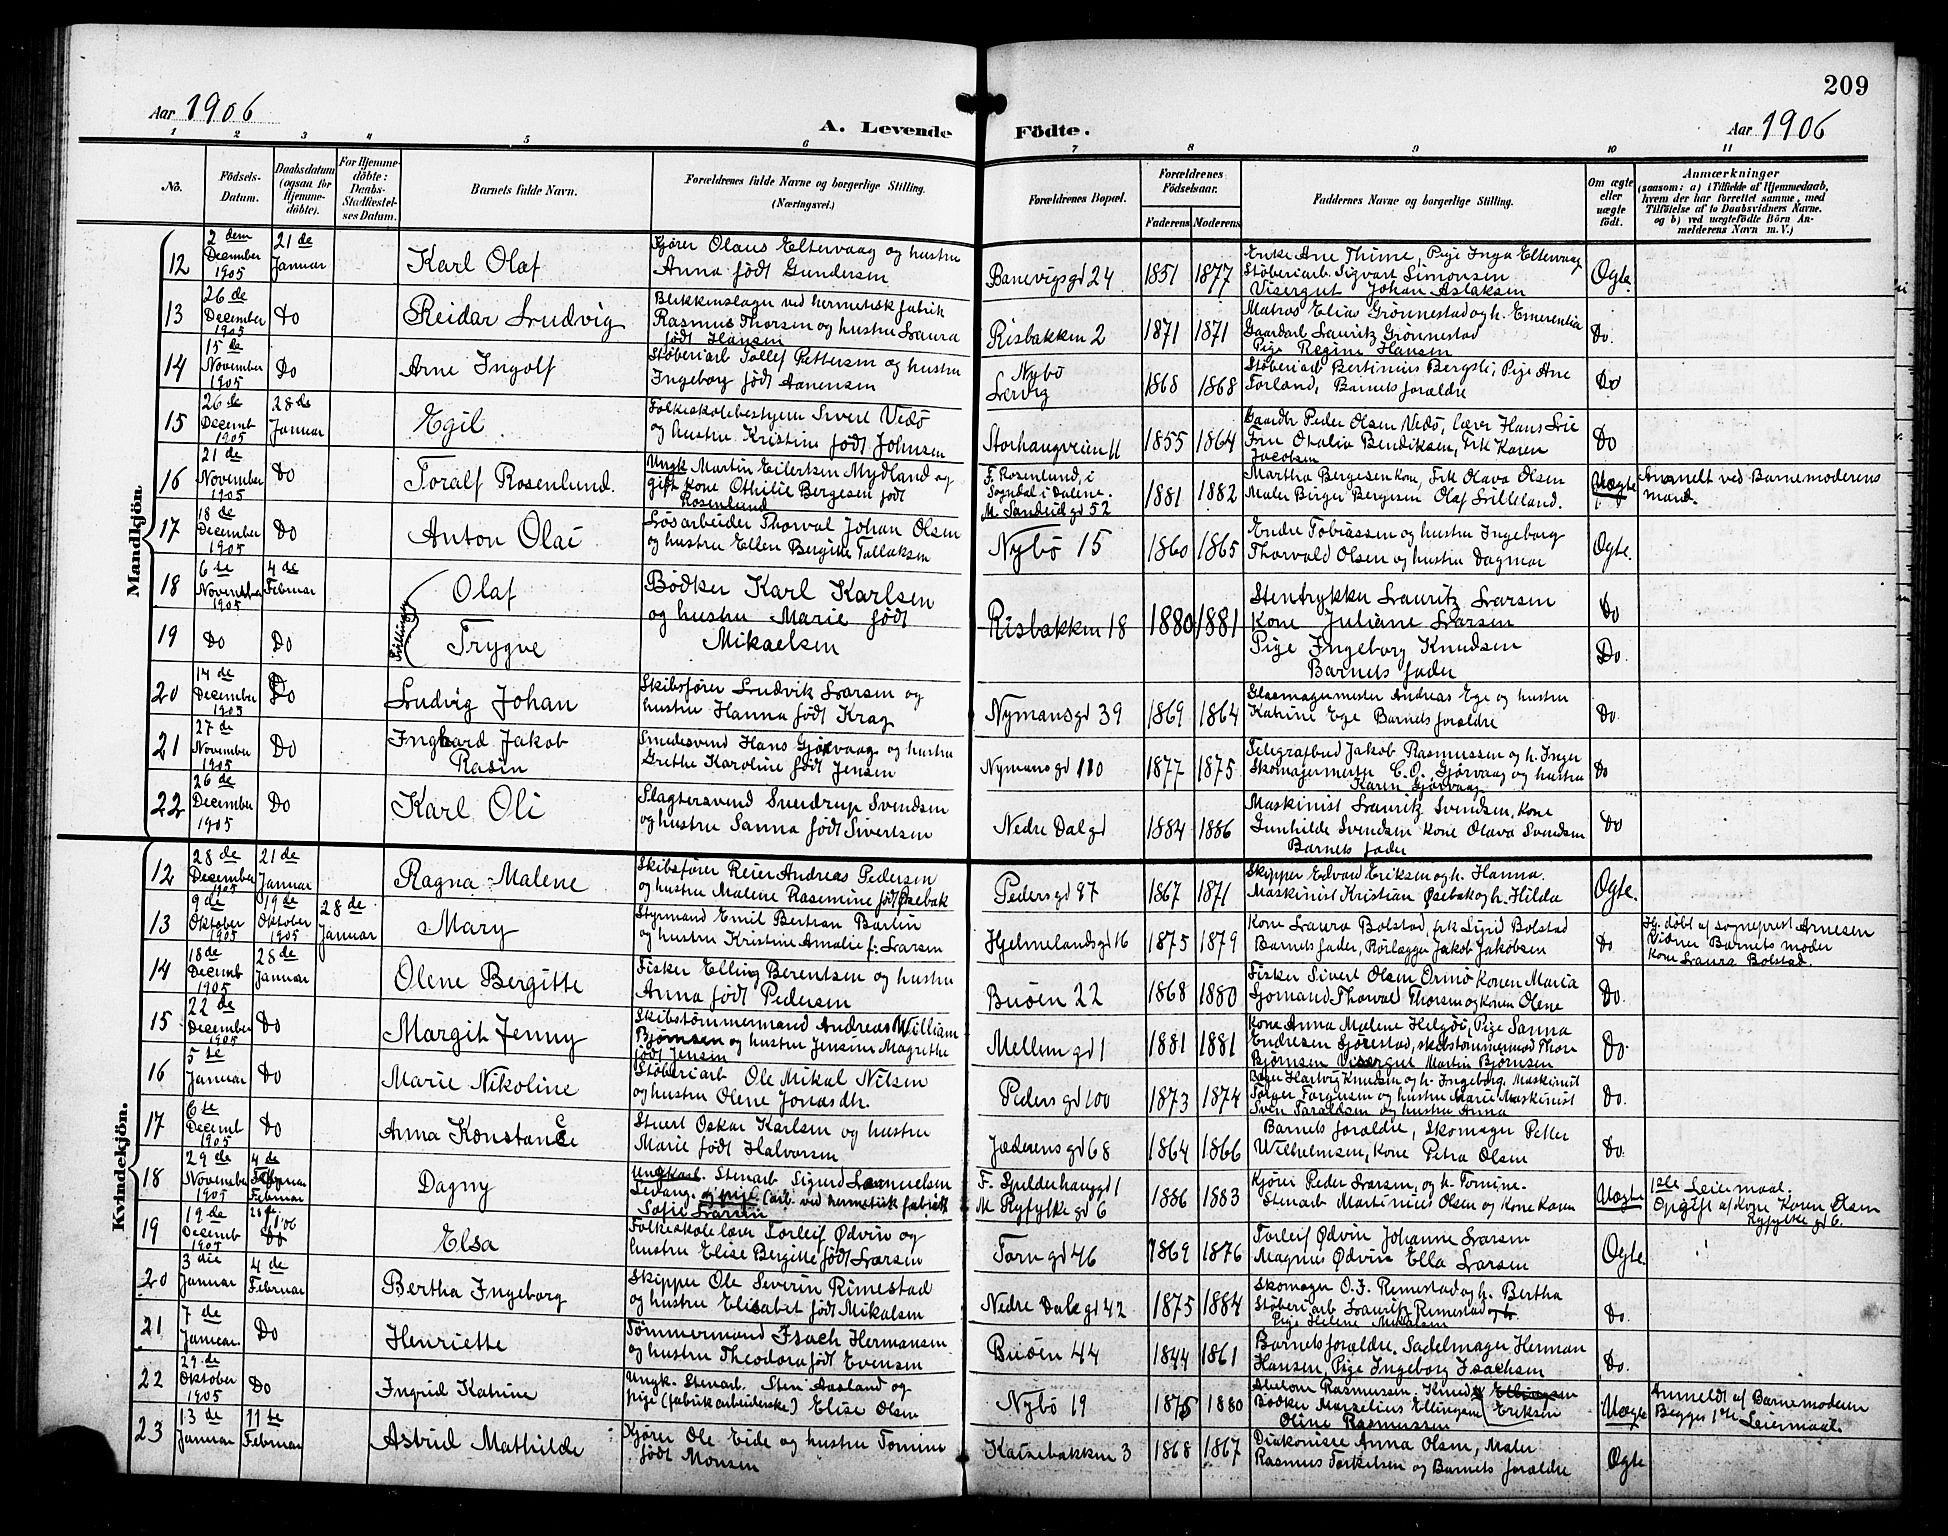 209
Aar 1906
A. Levende Födte.
Aar 1906
1 2 3 4 5 6 7 8 9 10 11
No.
Födsels-Datum.
Daabsdatum (ogsaa for Hjemme-döbte).
For Hjemme-döbte: Daabs-Stadfæstel-ses Datum.
Barnets fulde Navn.
Forældrenes fulde Navne og borgerlige Stilling.
(Næringsvei.)
Forældrenes Bopæl.
Forældrenes Födselsaar.
Faderens Moderens
Faddernes Navne og borgerlige Stilling.
Om ægte eller uægte født.
Anmærkninger
(saasom: a) i Tilfælde af Hjemmedaab,
hvem der har forrettet samme, med
Tilföielse af to Daabsvidners Navne,
og b) ved uægtefödte Börn An-
melderens Navn m. V.)
Mandkjön.
12 2 den December 1905 21 de Januar Karl Olaf
Kjører Olaus Eltervaag og hustru
Anna født Gundersen
Banevigsgd 24 1851 1877
Enke Ane Thime, Pige Inga Eltervaag
Støberiarb Sigvart Simonsen
Visergut Johan Aslaksen
Ægte.
13 26 de December 1905 Do Reidar Ludvig
Blikkenslager ved hermetisk fabrik
Rasmus Thorsen og hustru Laura
født Hansen
Risbakken 2 1871 1871
Matros Elias Grønnestad og h. Emerentia
Gaardarb Lauritz Grønnestad
Pige Regine Hansen
Do.
14 15 de November 1905 Do Arne Ingolf
Støberiarb Tollef Pettersen og hustru
Ingeborg født Aanensen
Nybø
Lervig 1868 1868
Støberiarb Bertinius Bergsli, Pige Ane
Torland, Barnets forældre
Do
15 26 de Decemb 1905 28 de Januar Egil
Folkeskolebestyrer Sivert Vedø
og hustru Kristine født Johnsen
Storhaugveien 11 1855 1864
Gaardbr Peder Olsen Vedø, lærer Hans Lie
Fru Othalia Bendiksen, Frk Karen
Jacobsen
Do
16 21 de November 1905 Do Toralf Rosenlund.
Ungk Martin Eilertsen Mydland og
gift kone Othilie Bergesen født
Rosenlund
F. Rosenlund, i
Sogndal i Dalene.
M. Sandeid gd 52 1881 1882
Martha Bergesen kone, Frk Olava Olsen
Maler Birger Bergesen Olaf Lilleland.
Uægte
Anmeldt ved Barnemoderens
mand.
17 18 de December 1905 Do Anton Olai
Løsarbeider Thorval Johan Olsen
og hustru Ellen Bergitte Tollaksen
Nybø 15 1860 1865
Endre Tobiassen og hustru Ingeborg
Thorvald Olsen og hustru Dagmar
Ægte.
18 6 te November 1905 4 de Februar Olaf
Tvillinger
Bødker Karl Karlsen
og hustru Marie født
Mikaelsen
Risbakken 18 1880 1881
Stentrykker Lauritz Larsen
Kone Juliane Larsen
Pige Ingeborg Knudsen
Barnets fader
Do
19 Do Do Trygve
Do.
20 14 de December 1905 Do Ludvig Johan
Skibsfører Ludvik Larsen og
hustru Hanna født Krag
Nymansgd 39 1869 1864
Glasmagermester Andreas Ege og hustru
Katrine Ege Barnets forældre
Do.
21 27 de November 1905 Do Ingvard Jakob
Rasin
Smedesvend Hans Gjørvaag og hustru
Grethe Karoline født Jensen
Nymansgd 110 1877 1875
Telegrafbud Jakob Rasmussen og h. Inger
Skomagermester C.O. Gjørvaag og hustru
Karen Gjørvaag
Do
22 26 de December 1905 Do Karl Oli
Slagtersvend Sverdrup Svendsen
og hustru Sanna født Sivertsen
Nedre Dalgd 1884 1886
Maskinist Lauritz Svendsen, Kone
Gunhilde Svendsen Kone Olava Svendsen
Barnets fader
Do
Kvindekjön.
12 28 de December 1905 21 de Januar Ragna Malene
Skibsfører Reier Andreas Pedersen
og hustru Malene Rasemine født Øsebak
Pedersgd 87 1867 1871
Skipper Edvard Eriksen og h. Hanna.
Maskinist Kristian Øsebak og h. Hilda
Ægte.
13 9 de Oktober 1905 19 de Oktober 1905 28 de Januar Mary
Styrmand Emil Bertran Bartin
og hustru Kristine Amalie f: Larsen
Hjelmelandsgd 16 1875 1879
Kone Laura Bolstad, frk Sigrid Bolstad
Barnets fader, Rørlægger Jakob Jakobsen
Do
Hj. døbt af sogneprest Arnesen
Vidner Barnets moder
Kone Laura Bolstad.
14 18 de Decemb 1905 28 de Januar Olene Bergitte
Fisker Elling Berentsen og hustru
Anna født Pedersen
Buøen 22 1868 1880
Fisker Sivert Olsen Ormø Konen Maria
Sjømand Thorval Thorsen og Konen Olene
Do.
15 22 de December 1905 Do Margit Jenny
Skibstømmermand Andreas William
Bjørnsen og hustru Jensine Magrethe
født Jensen
Mellemgd 1 1881 1881
Kone Anna Malene Helgøi, Pige Sanna
Endresen Gjørestad, skibstømmermd Thore
Bjørnsen Visergut Martin Bjørnsen
Do.
16 5 te Januar Do Marie Nikoline
Støberiarb Ole Mikal Nilsen
og hustru Olene Jonasdtr.
Pedersgd 100 1873 1874
Bager Hartvig Knudsen og h. Ingeborg, Maskinist
Torger Torgersen og hustru Marie Maskinist
Sven Taraldsen og hustru Anna
Do.
17 6 te Decemb 1905 Do Anna Konstance
Stuert Oskar Karlsen og hustru
Marie født Halvorsen
Jæderensgd 68 1864 1866
Barnets forældre, Skomager Petter
Wilhelmsen, Kone Petra Olsen
Do.
18 29 de November 1905 4 de Februar Dagny
Ungkarl. Stenarb Sigurd Samuelsen
Tedang. og pige (arb. ved hermetisk fabrik
Sofie Larsen
F. Gyldenhaugd 1
M Ryfylkegd 6 1886 1883
Kjører Peder Larsen og h. Tomine.
Stenarb Martinius Olsen og Kone Karen
Uægte
1ste Leiermaal.
Opgift af Kone Karen Olsen
Ryfylkegd 6.
19 19 de Decemb 1905 28 de 1 06 Elsa
Folkeskolelærer Torleif Ødvin og
hustru Elise Bergitte født Larsen
Torngd 46 1869 1876
Torleif Ødvin Johanne Larsen
Magnus Ødvin Ella Larsen
Ægte.
20 3 die Januar 4 de Februar Bertha Ingeborg
Skipper Ole Severin Rimestad
og hustru Elisabet født Mikalsen
Nedre Dalegd 42 1875 1884
Skomager O.F. Remestad og h. Bertha
Støberiarb Lauritz Rimestad og h
Pige Helene Mikalsen
Do.
21 7 de Januar. Do Henriette
Tømmermand Isach Hermansen
og hustru Theodora født Evensen
Buøen 44 1844 1861
Barnets forældre. Sadelmager Herman
Hansen, Pige Ingeborg Isachsen
Do.
22 29 de Oktober 1905 Do Ingrid Katrine
Ungk. Stenarb. Sten Aasland og
pige (fabrikarbeiderske) Elise Olsen
Nybø 19 1875 1880
Abelone Rasmussen, Knud Ellingsen Eriksen
Bødker Marselius Ellingsen
Oline Rasmussen
Uægte
Anmeldt af Barnemoderen
Begges 1ste Leiermaal.
23 13 de Januar 11 te Februar Astrid Mathilde
Kjører Ole Eide og hustru Tomine
født Monsen
Katsebakken 3 1868 1867
Diakonisse Anna Olsen, Maler
Rasmus Torkelsen og Barnets forældre
Ægte